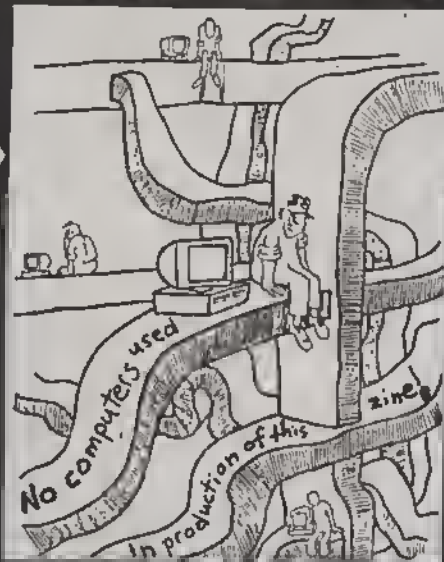 No computers used
In production of this
zine.